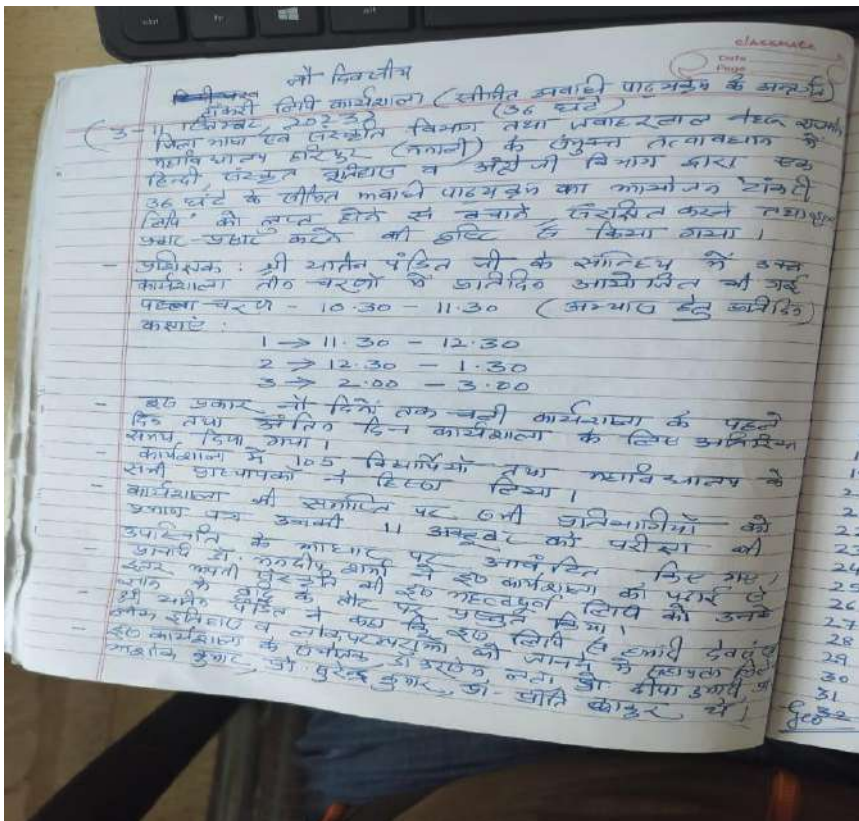 classmate
Date
Page
नौ दिवसीय
टांकरी लिपि कार्यशाला (सीमित अवधि पाठ्यक्रम के अन्तर्गत)
(36 घंटे)
(3-11 2023)
जिला भाषा एवं संस्कृति विभाग तथा जवाहरलाल नेहरू
महाविद्यालय हरिपुर (मनाली) के संयुक्त तत्वावधान में
हिन्दी संस्कृत इतिहास व अंग्रेजी विभाग द्वारा एक
36 घंटे के सीमित अवधि पाठ्यक्रम का आयोजन टांकरी
लिपि को लुप्त होने से बचाने, संरक्षित करने तथा
प्रचार-प्रसार करने की दृष्टि से किया गया।
- प्रशिक्षक : श्री यतिन पंडित जी के सान्निध्य में उक्त
कार्यशाला तीन चरणों में प्रतिदिन आयोजित की गई
पहला चरण - 10.30 - 11.30 (अभ्यास हेतु प्रतिदिन)
कक्षाएं :
1 → 11.30 - 12.30
2 → 12.30 - 1.30
3 → 2.00 - 3.00
- इस प्रकार नौ दिनों तक चली कार्यशाला के पहले
दिन तथा अंतिम दिन कार्यशाला के लिए अतिरिक्त
समय दिया गया।
- कार्यशाला में 105 विद्यार्थियों तथा महाविद्यालय के
सभी प्राध्यापकों ने हिस्सा लिया।
- कार्यशाला की समाप्ति पर सभी प्रतिभागियों को
प्रमाण पत्र उनकी 11 अक्टूबर को परीक्षा की
उपस्थिति के आधार पर आवंटित किए गए।
- प्राचार्य डॉ. मनदीप शर्मा ने इस कार्यशाला को पढ़ाई से
इतर अपनी संस्कृति की इस महत्वपूर्ण लिपि को उनके
ज्ञान के तौर पर प्रस्तुत किया।
- श्री यतिन पंडित ने कहा कि इस लिपि से हमारी
लोक इतिहास व लोकपरम्पराओं को जानने में सहायता
- इस कार्यशाला के संयोजक डॉ उरसेम लता, डॉ. दीपा
कुमार, प्रो. सुरेन्द्र कुमार, डॉ. ठाकुर थे।
22
23
24
25
26
27
28
29
30
31
32